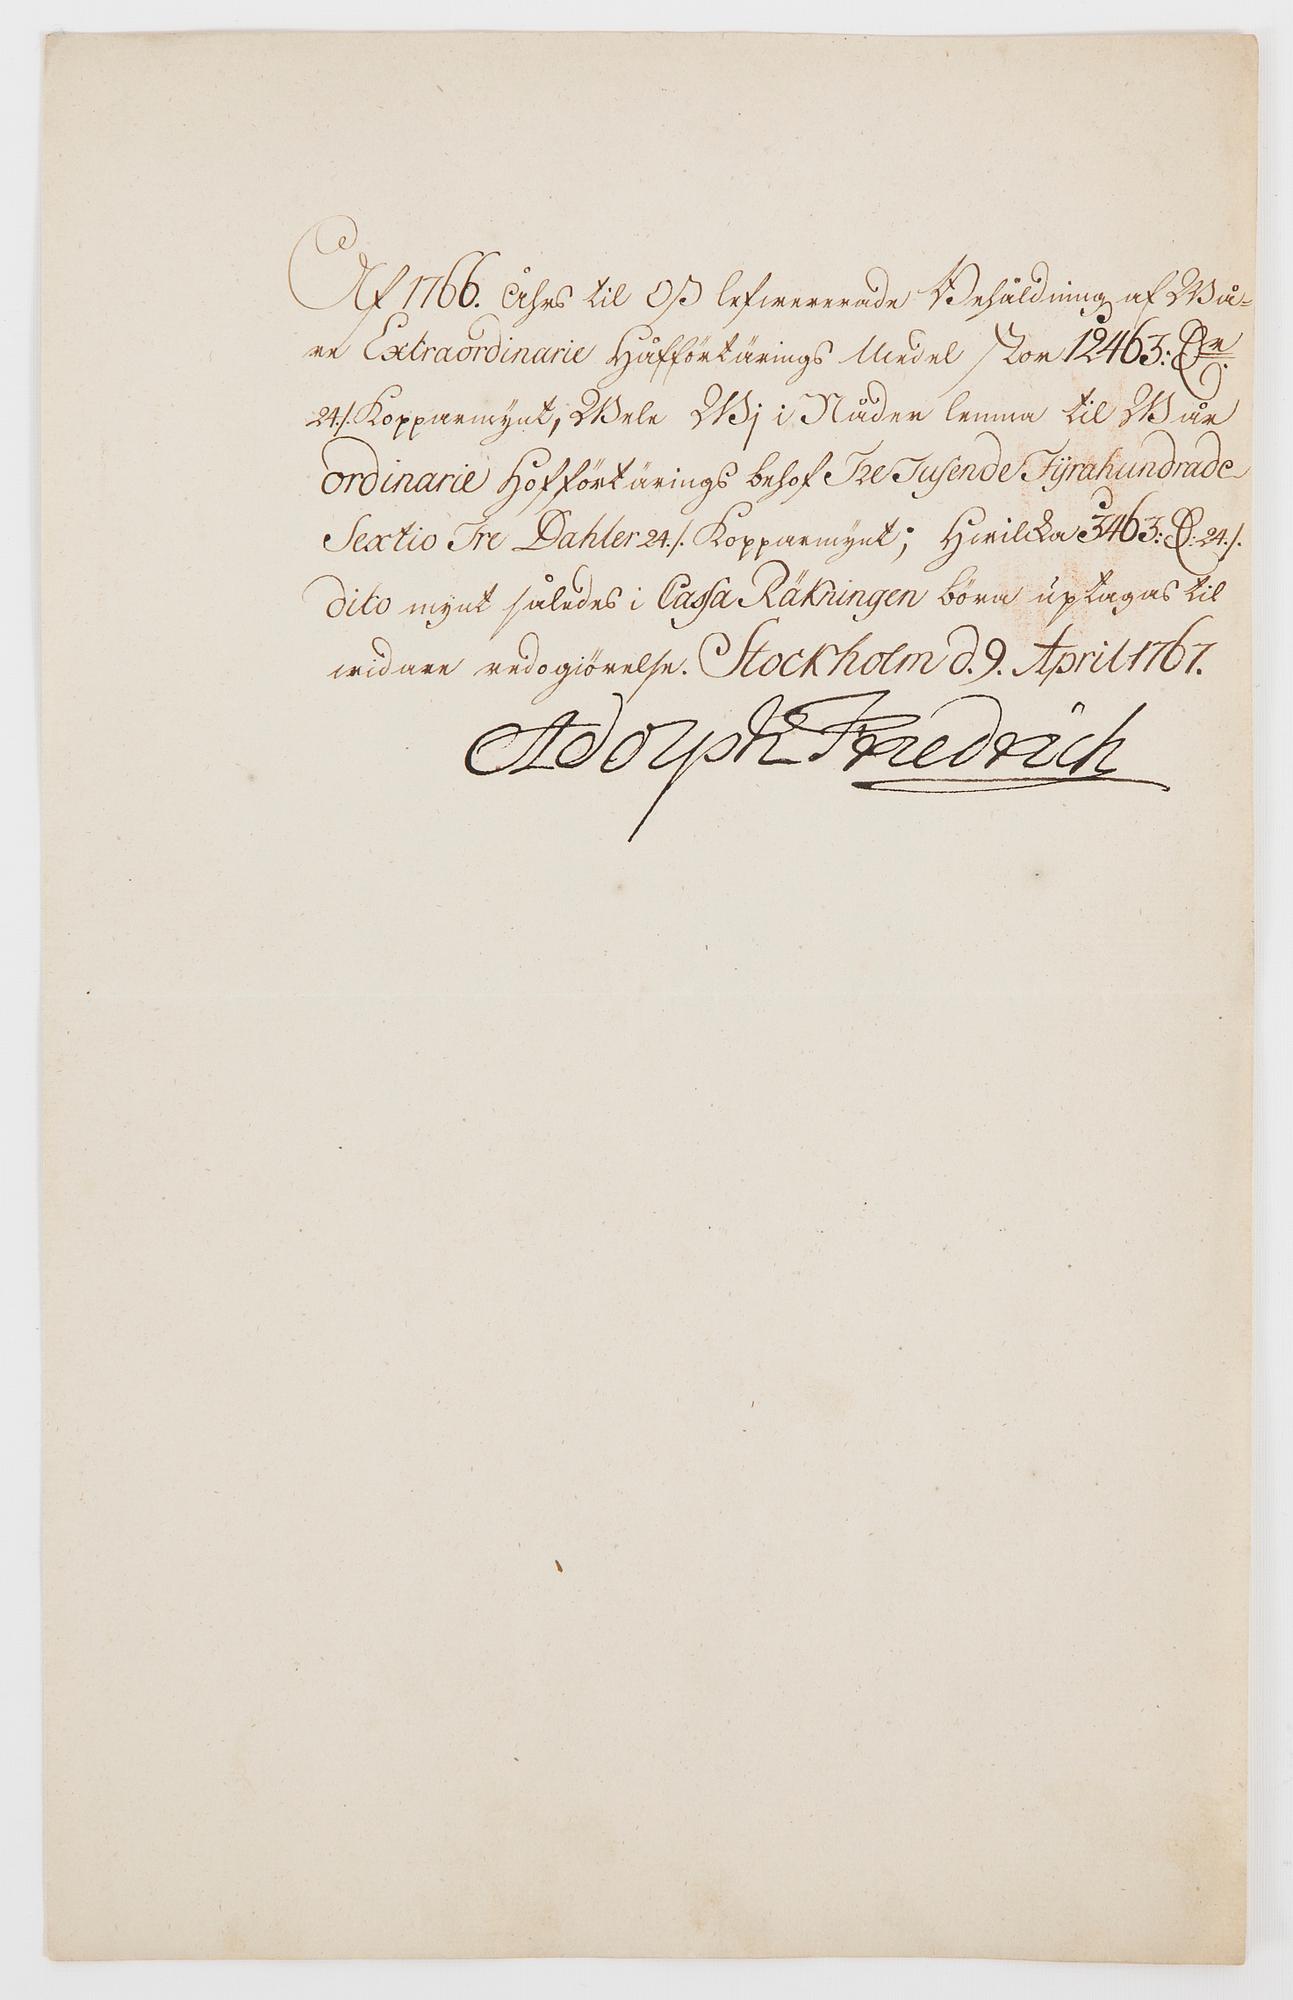 Af 1766. Åhrs til Oss lefwererade Behåldning af Wå=
re Extraordinarie Håfförtärings Medel stor 12463: D:r
24./. Kopparmynt, Wele Wj i Nåder lemna til Wår
ordinarie Hofförtärings behof Tre Tusende Fÿrahundrade
Sextio Tre Dahler 24./. Kopparmynt; Hwilcka 3463: D: 24./.
dito mynt således i Cassa Räkningen böra uptagas til
widare redogiörelse. Stockholm d. 9. April 1767.
Adolph Friedrich